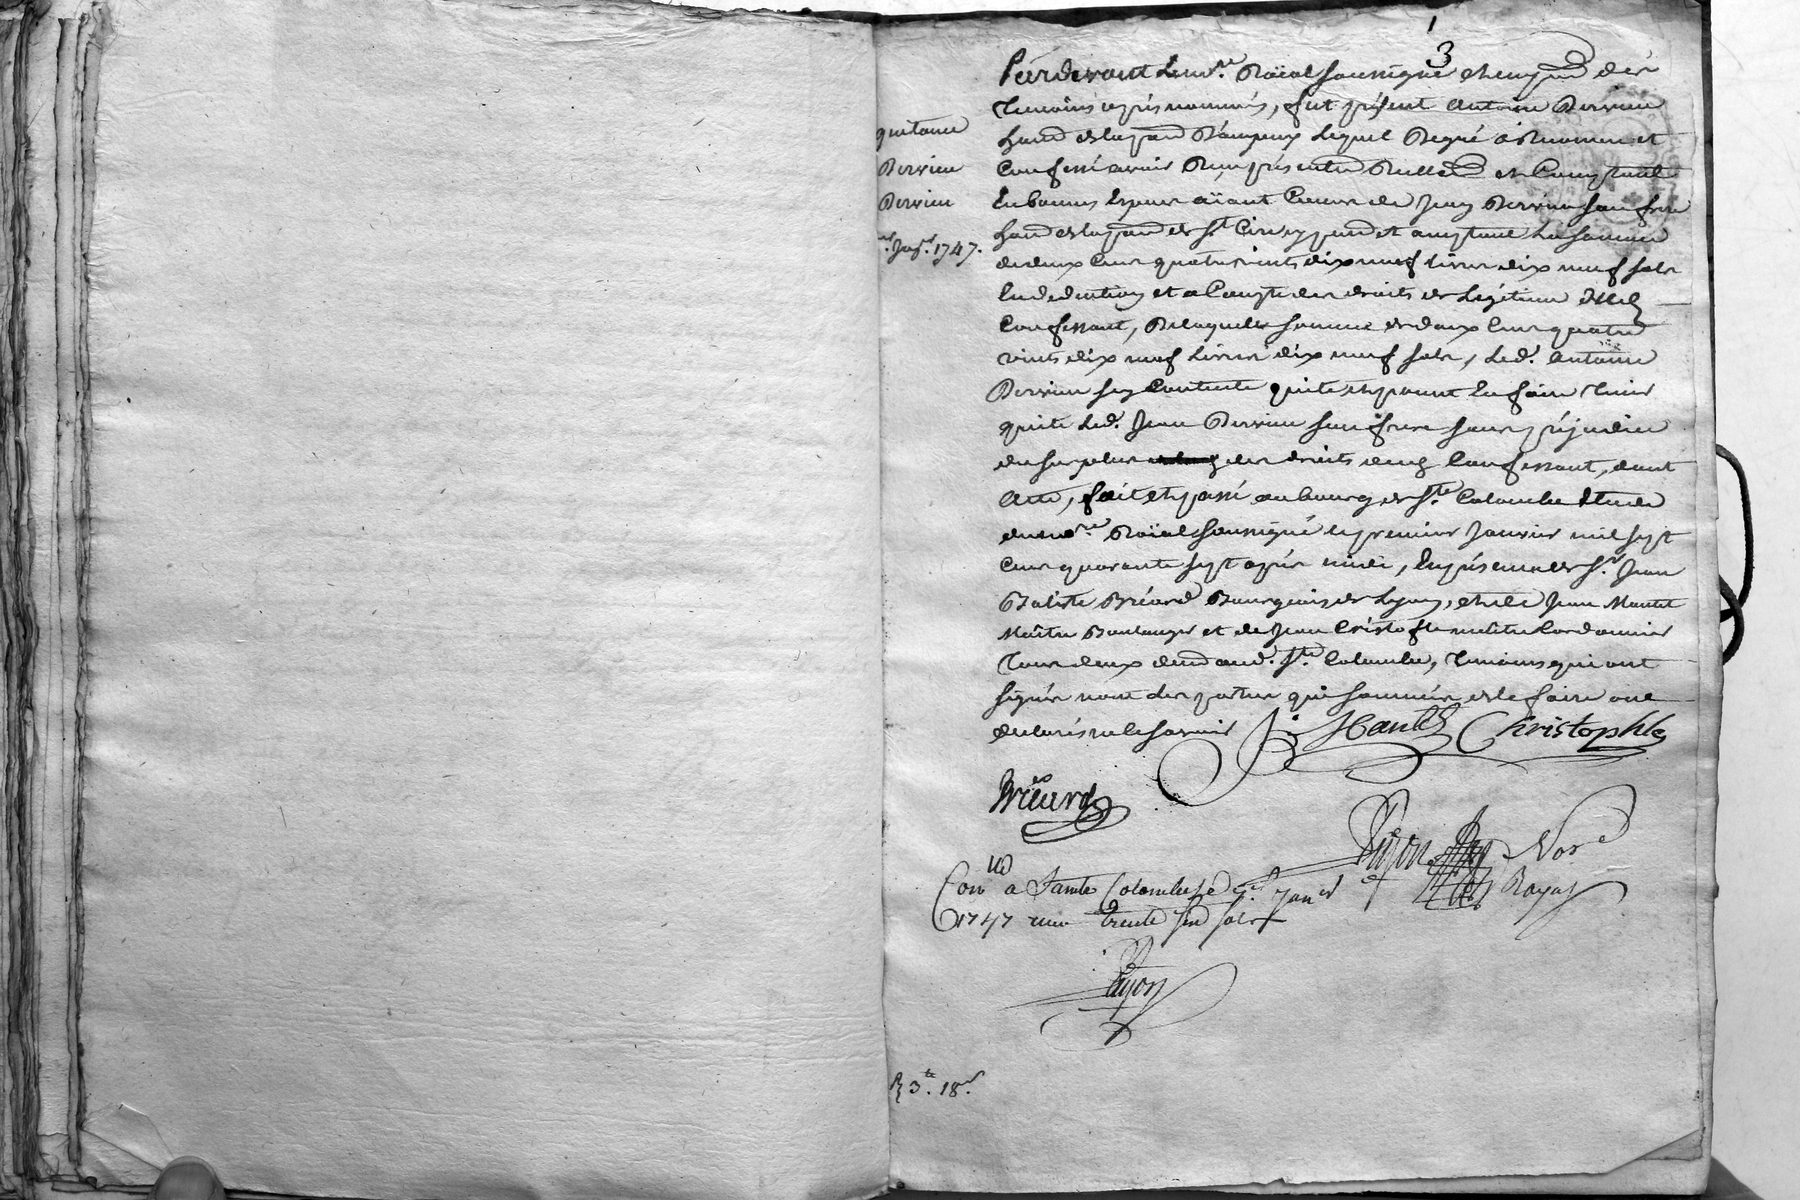 1
3
Pardevant le no.re Roïal soussigné et en pnce des
Temoins après nommés, fut présent Antoine Perrieu
quitance
Perrieu
Perrieu
1747.
Lequel de gré a Reconnu et
Confessé avoir Reçu présentement Réellement et Comptant
En bonnes Especes aïant Cours de Jean Perrieu son frere
La somme
de deux Cens quatrevints dix neuf livres dix neuf sols
En deduction et a Compte des droits de Légitime dud.
Confessant, De laquelle somme de deux Cens quatre
vints dix neuf Livres dix neuf sols, Led. Antoine
Perrieu s'est Contenté quitte et promet En faire Tenir
quitte Led. Jean Perrieu son frere sans préjudice
du surplus des droits dud. Confessant, dont
Acte, fait et passé au bourg de Ste. Colombe Etude
du no.re Roïal soussigné le premier Janvier mil sept
Cens quarante sept après midi, En présence de Sr. Jean
Batiste Bréard Bourgeois de Lyon, et de Jean Mantel
Maître Boulanger et de Jean Cristofle maître Cordonnier
Tous deux dud. Ste. Colombe, Temoins qui ont
signés non les parties qui sommées de le faire ont
declarés ne le savoir J. Mantel Christophle
Bréard
Payon Nore.
Royal
Con.llé a Sainte Colombe le 1er. Janer
1747 reçu trente six sols
Payon
R 3.tt 18.s